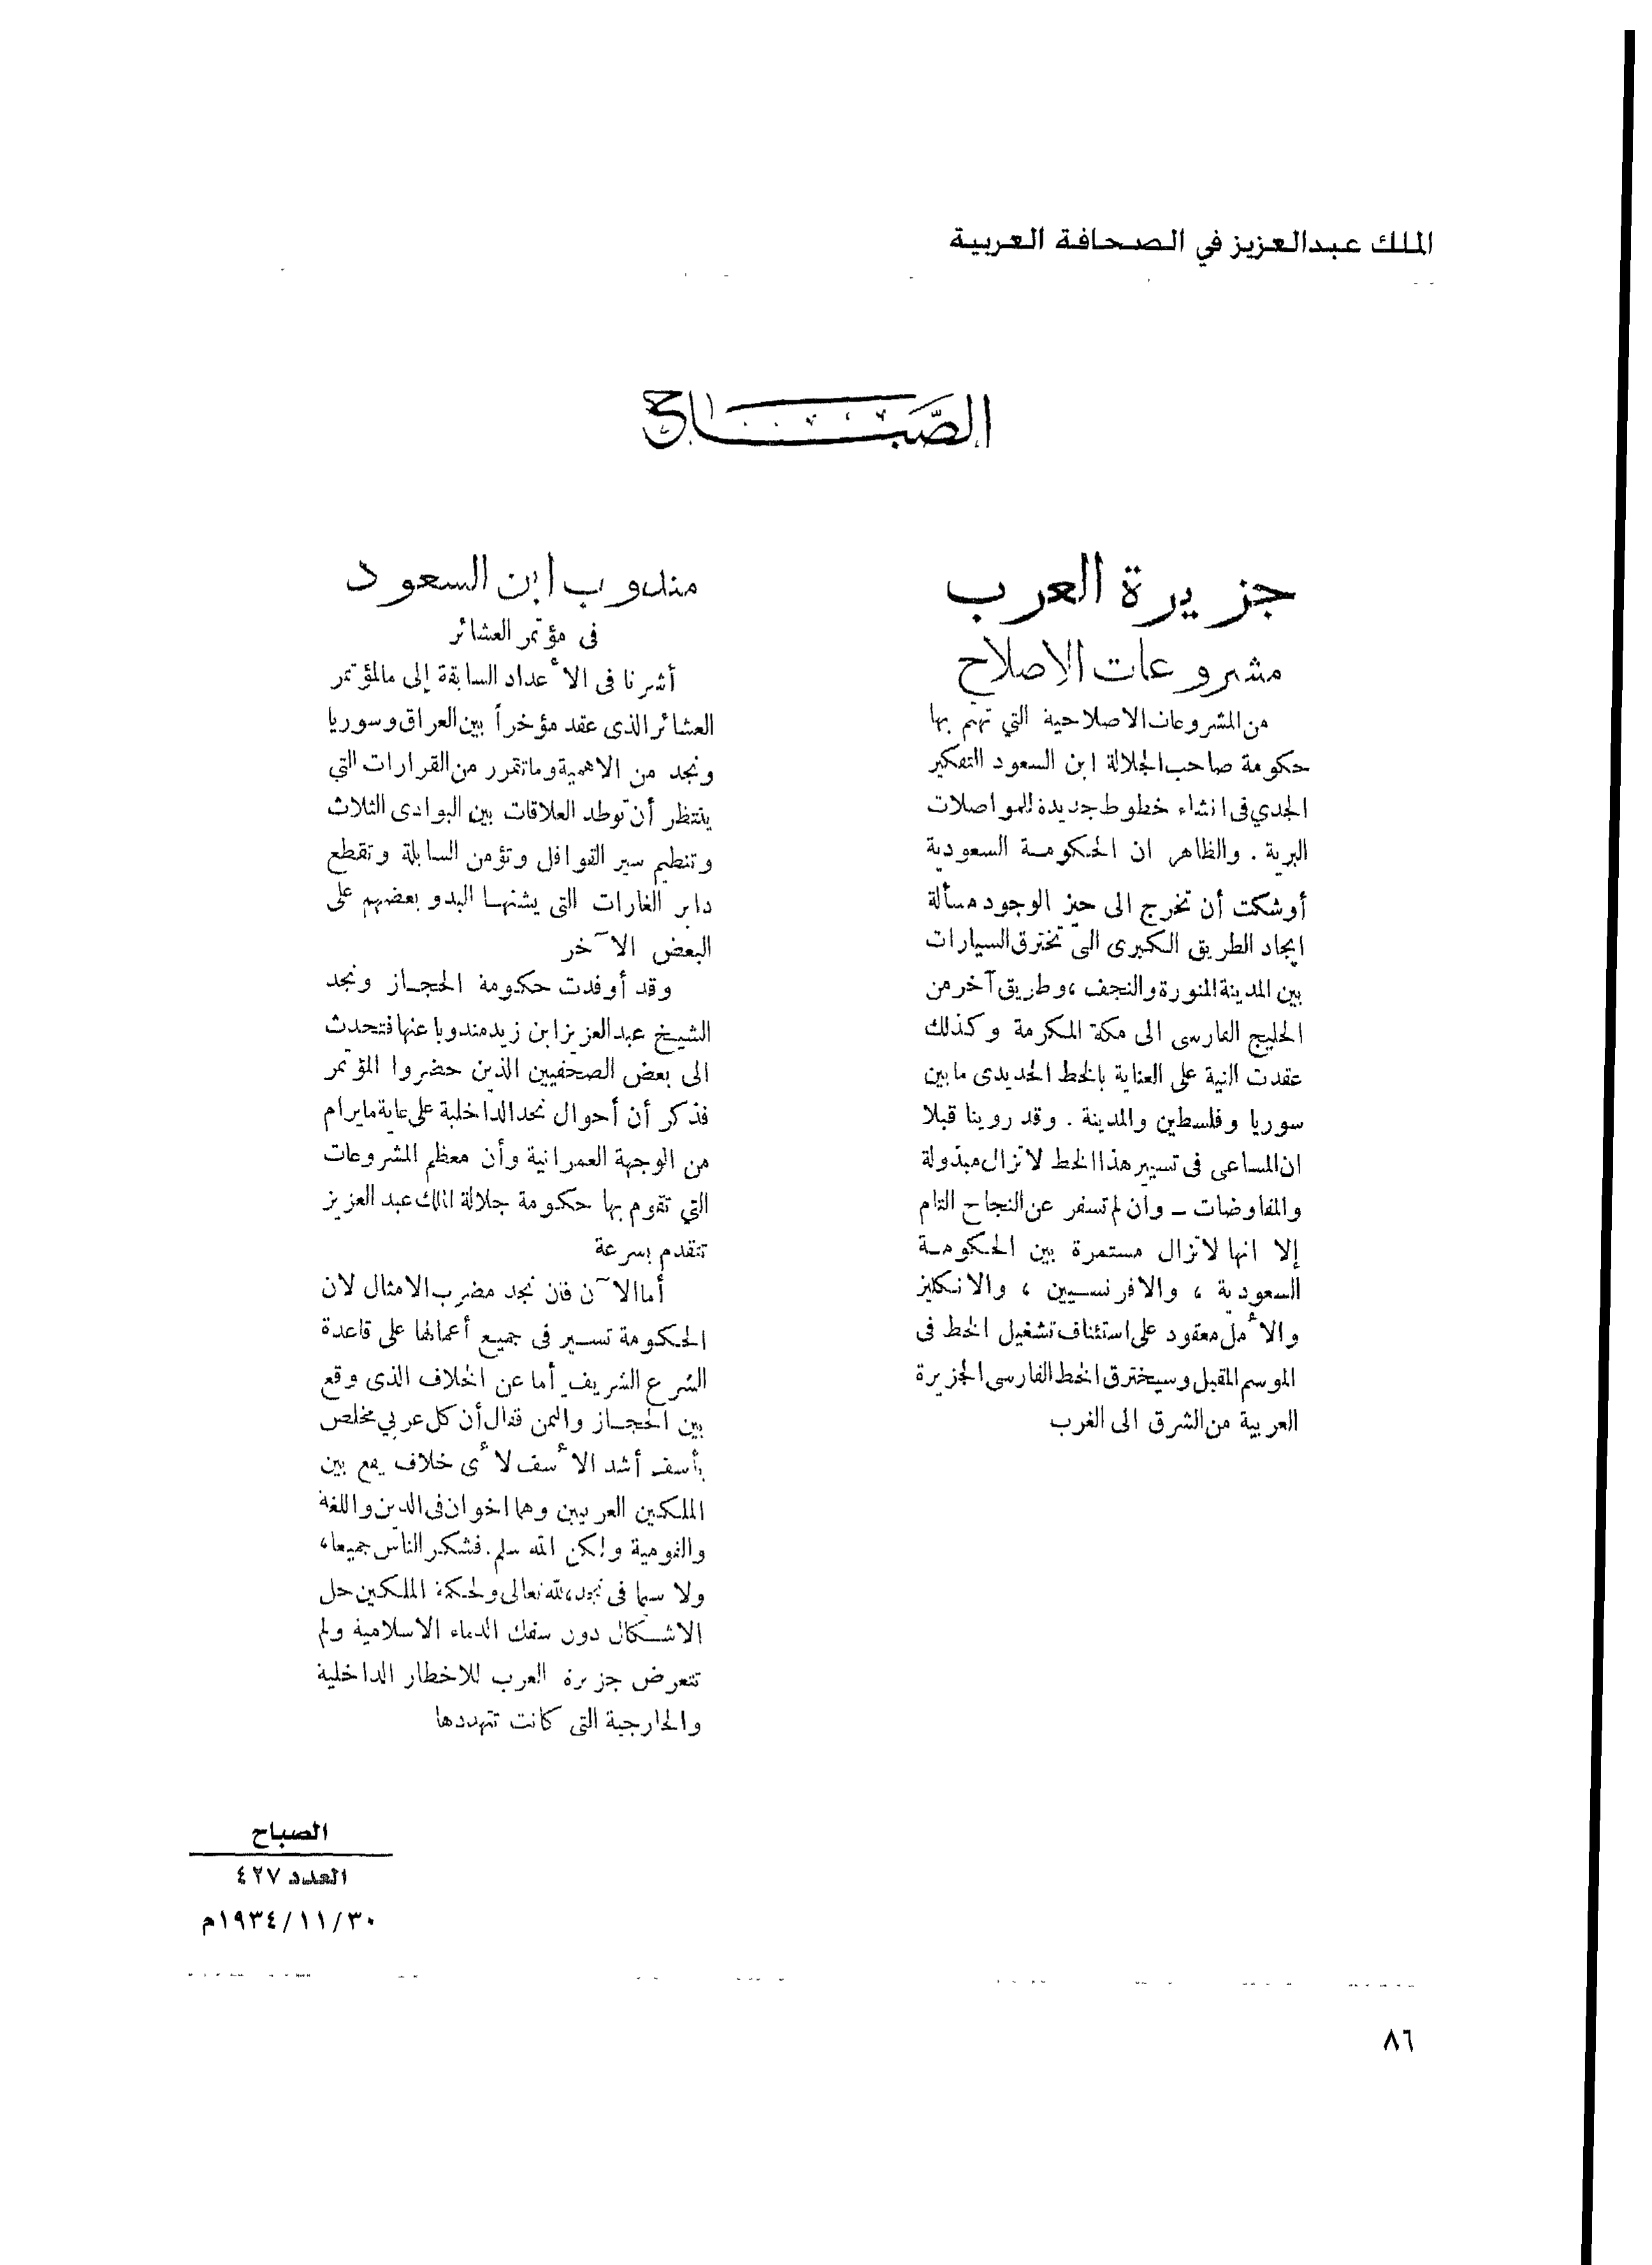 الملك عبدالعزيز في الصحافة العربية
الصباح
جزيرة العرب
مشروعات الإصلاح
من المشروعات الاصلاحية التي تهتم بها
حكومة صاحب الجلالة ابن السعود التفكير
الجدي فى انشاء خطوط جديدة للمواصلات
البرية . والظاهر ان الحكومة السعودية
أوشكت أن تخرج الى حيز الوجود مسألة
ايجاد الطريق الكبرى التى تخترق السيارات
بين المدينة المنورة والنجف ، وطريق آخر من
الخليج الفارسى الى مكة المكرمة وكذلك
عقدت النية على العناية بالخط الحديدى مابين
سوريا وفلسطين والمدينة . وقد روينا قبلا
ان المساعى فى تسيير هذا الخط لاتزال مبذولة
والمفاوضات ـ وان لم تسفر عن النجاح التام
إلا انها لاتزال مستمرة بين الحكومة
السعودية ، والافرنسيين ، والانكليز
والأمل معقود على استئناف تشغيل الخط فى
الموسم المقبل وسيخترق الخط الفارسى الجزيرة
العربية من الشرق الى الغرب
مندوب ابن السعود
فى مؤتمر العشائر
أشرنا فى الأعداد السابقة إلى مالمؤتمر
العشائر الذى عقد مؤخراً بين العراق وسوريا
ونجد من الاهمية وماتقرر من القرارات التي
ينتظر أن توطد العلاقات بين البوادى الثلاث
وتنظيم سير القوافل وتؤمن السابلة وتقطع
دابر الغارات التى يشنها البدو بعضهم على
البعض الآخر
وقد أوفدت حكومة الحجاز ونجد
الشيخ عبدالعزيز ابن زيد مندوبا عنها فتحدث
الى بعض الصحفيين الذين حضروا المؤتمر
فذكر أن أحوال نجد الداخلية على غاية مايرام
من الوجهة العمرانية وأن معظم المشروعات
التي تقوم بها حكومة جلالة الملك عبد العزيز
تتقدم بسرعة
أما الآن فان نجد مضرب الامثال لان
الحكومة تسير فى جميع أعمالها على قاعدة
الشرع الشريف. أما عن الخلاف الذى وقع
بين الحجاز واليمن فقال أن كل عربي مخلص
يأسف أشد الأسف لأى خلاف يقع بين
الملكين العربيين وهما اخوان فى الدين واللغة
والقومية ولكن الله سلم. فشكر الناس جميعا،
ولا سيما فى نجد، لله تعالى ولحكمة الملكين حل
الاشكال دون سفك الدماء الاسلامية ولم
تتعرض جزيرة العرب للاخطار الداخلية
والخارجية التى كانت تتهددها
الصباح
العدد ٤٢٧
١٩٣٤/١١/٣٠م
٨٦